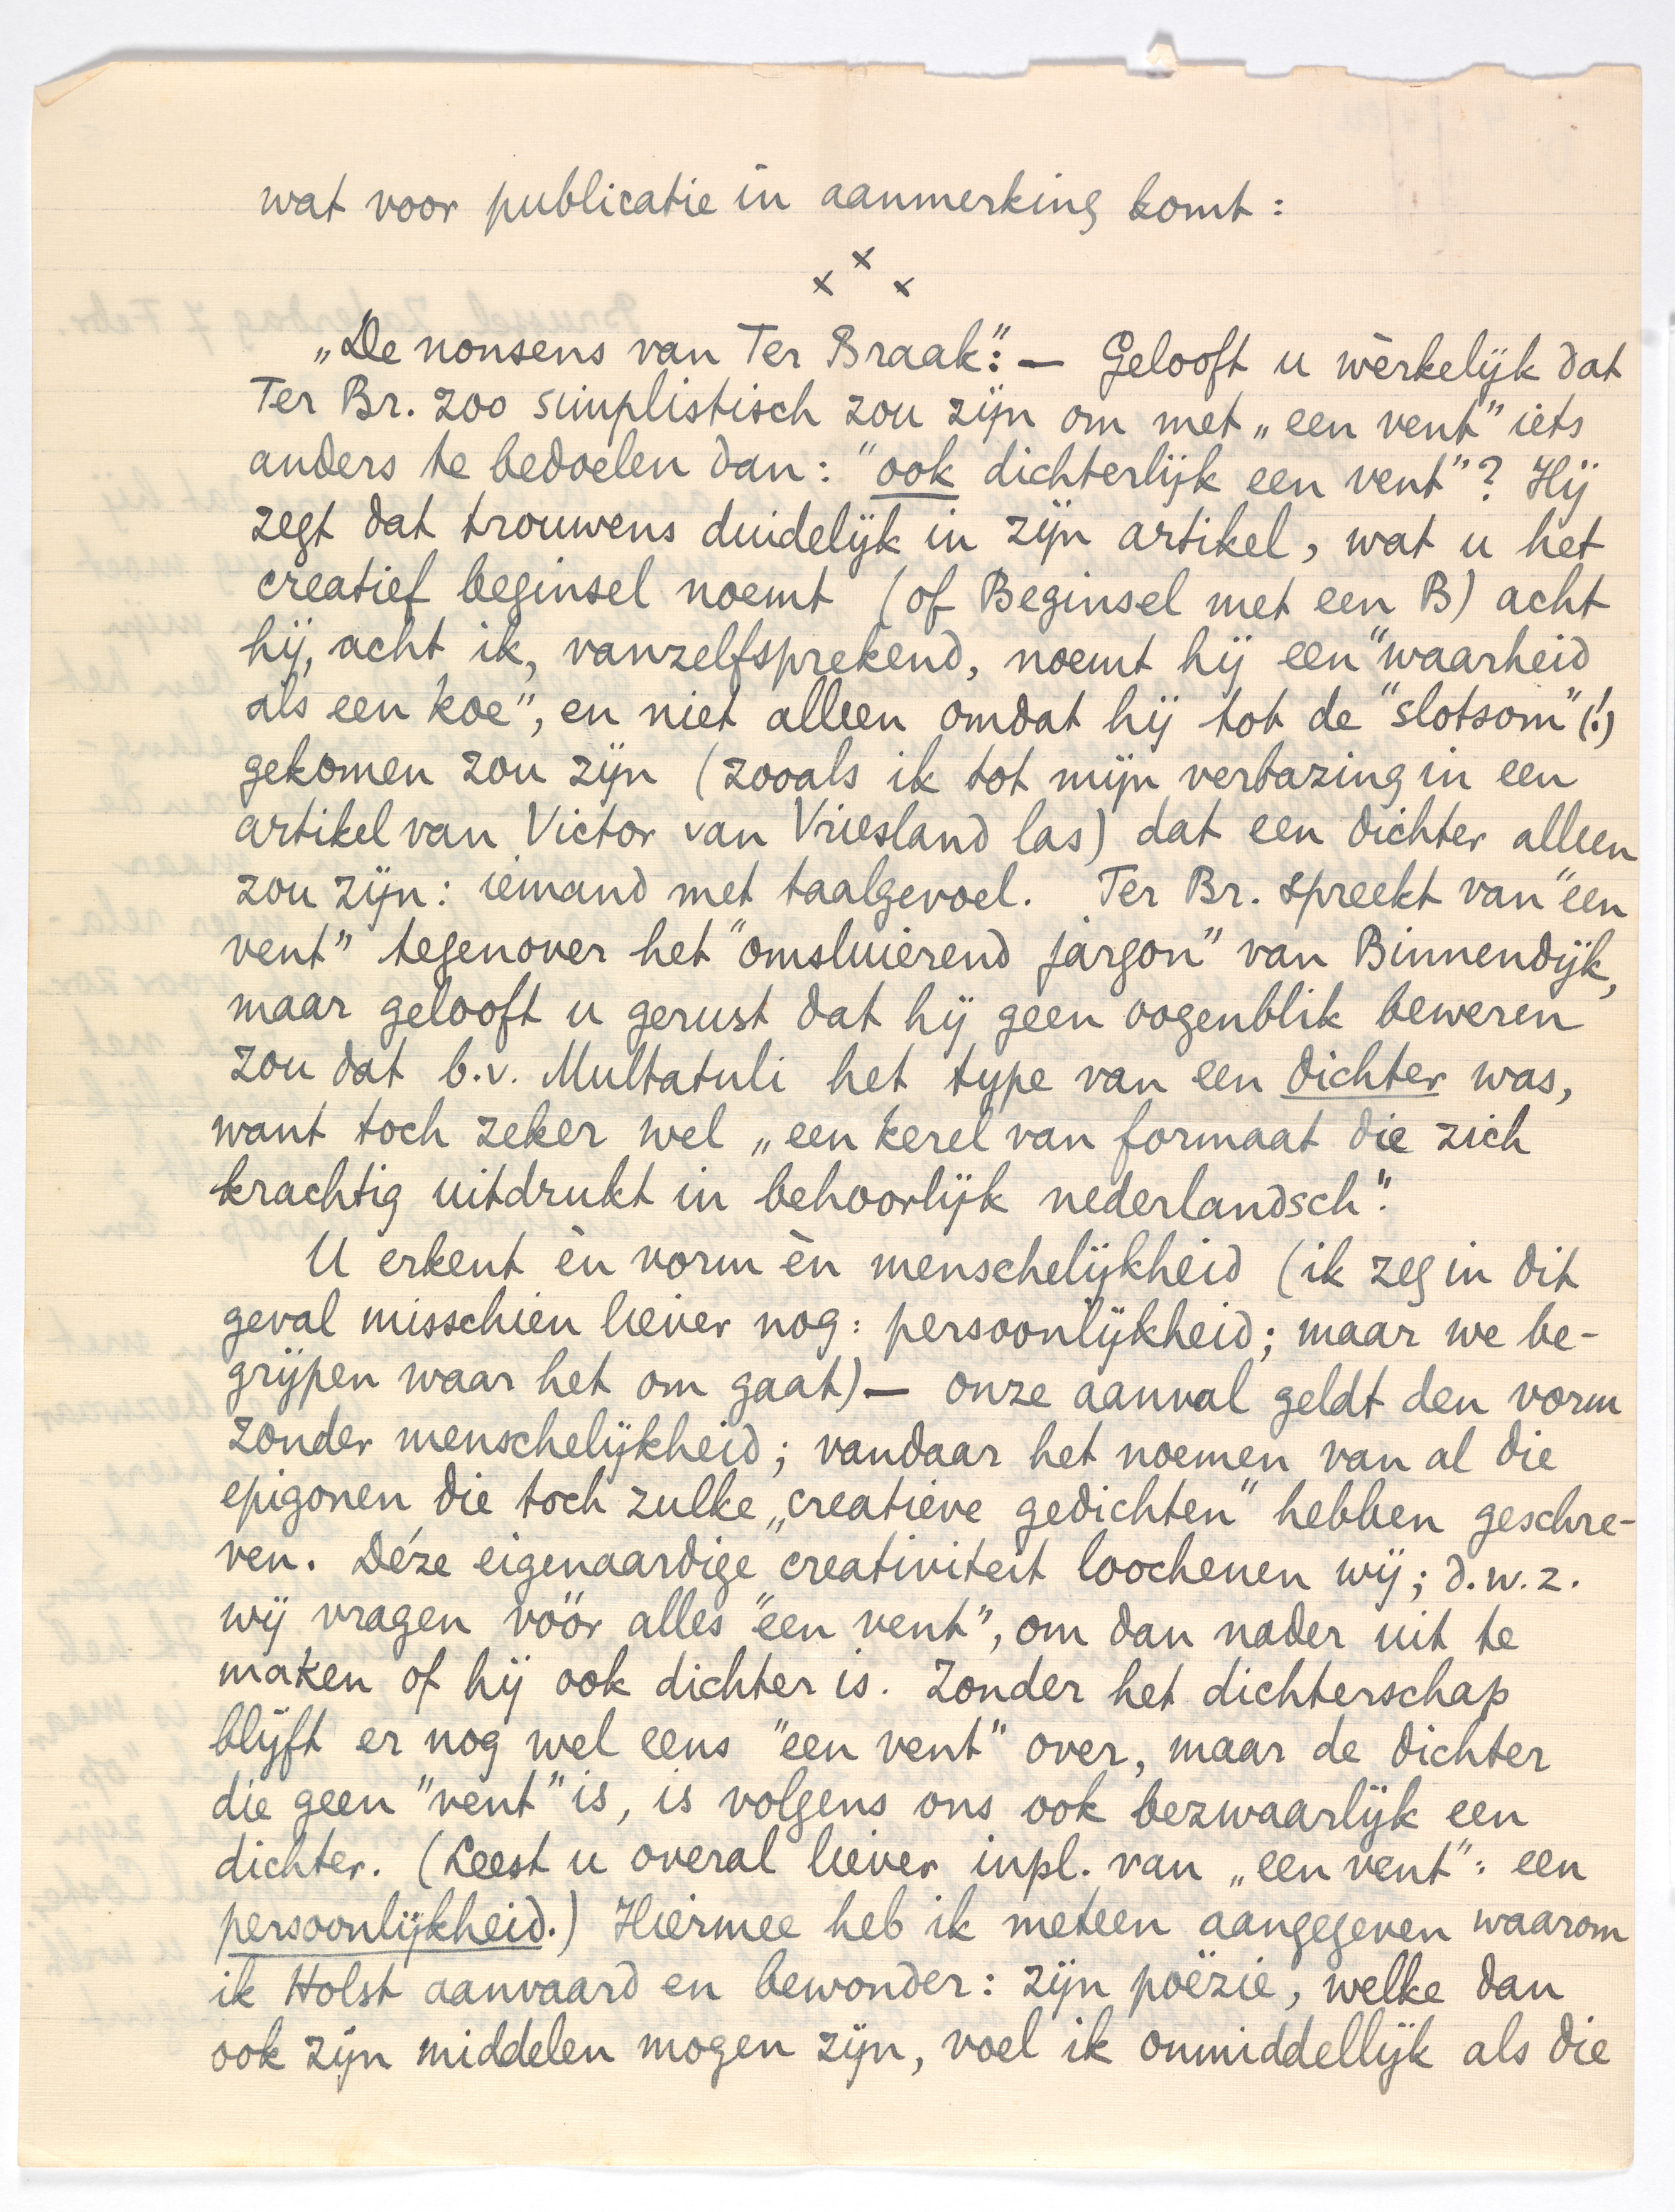 wat voor publicatie in aanmerking komt:
x x x
„De nonsens van Ter Braak": — Gelooft u wèrkelijk dat
Ter Br. zoo simplistisch zou zijn om met „een vent" iets
anders te bedoelen dan: "ook dichterlijk een vent"? Hij
zegt dat trouwens duidelijk in zijn artikel, wat u het
creatief beginsel noemt (of Beginsel met een B) acht
hij, acht ik, vanzelfsprekend, noemt hij een "waarheid
als een koe", en niet alleen omdat hij tot de "slotsom" (!)
gekomen zou zijn (zooals ik tot mijn verbazing in een
artikel van Victor van Vriesland las) dat een dichter alleen
zou zijn: iemand met taalgevoel. Ter Br. spreekt van "een
vent" tegenover het "omsluierend jargon" van Binnendijk,
maar gelooft u gerust dat hij geen oogenblik beweren
zou dat b.v. Multatuli het type van een dichter was,
want toch zeker wel „een kerel van formaat die zich
krachtig uitdrukt in behoorlijk nederlandsch".
U erkent èn vorm èn menschelijkheid (ik zeg in dit
geval misschien liever nog: persoonlijkheid; maar we be-
grijpen waar het om gaat) — onze aanval geldt den vorm
zonder menschelijkheid; vandaar het noemen van al die
epigonen die toch zulke „creatieve gedichten" hebben geschre-
ven. Déze eigenaardige creativiteit loochenen wij; d.w.z.
wij vragen vóór alles "een vent", om dan nader uit te
maken of hij ook dichter is. Zonder het dichterschap
blijft er nog wel eens "een vent" over, maar de dichter
die geen "vent" is, is volgens ons ook bezwaarlijk een
dichter. (Leest u overal liever inpl. van „een vent": een
persoonlijkheid.) Hiermee heb ik meteen aangegeven waarom
ik Holst aanvaard en bewonder: zijn poëzie, welke dan
ook zijn middelen mogen zijn, voel ik onmiddellijk als die